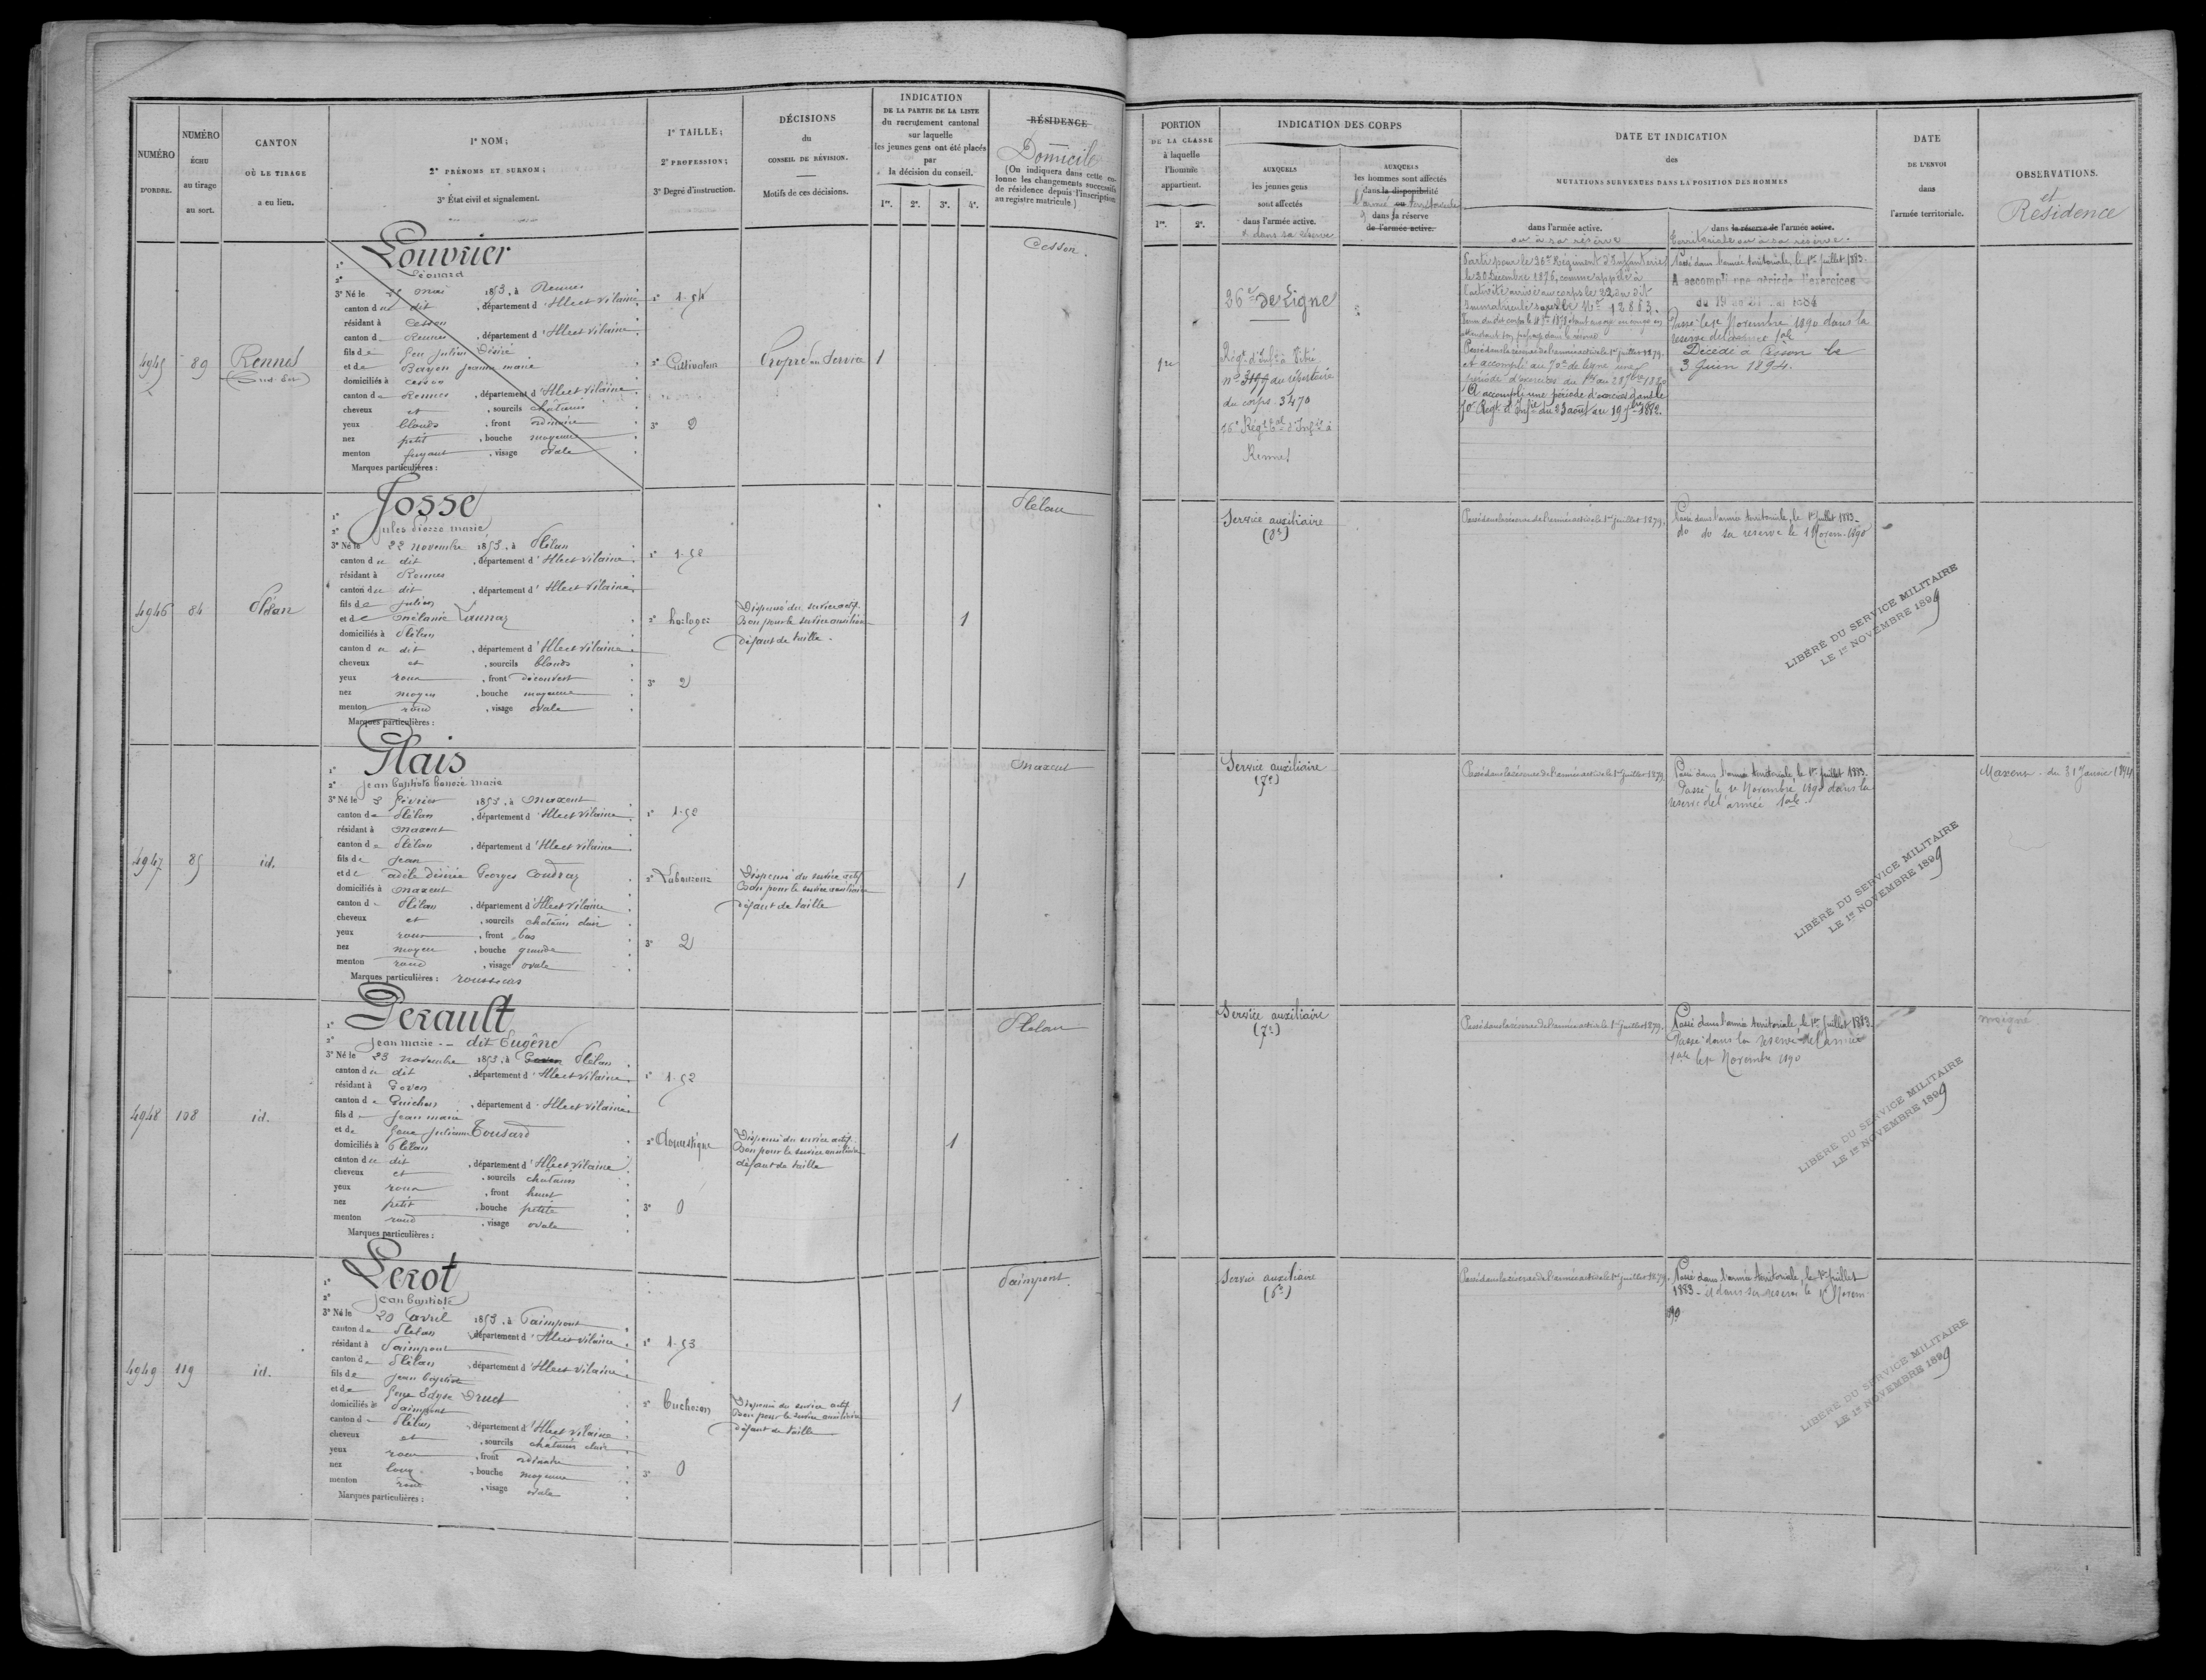 NUMÉRO
D'ORDRE.
NUMÉRO
ÉCHU
au tirage
au sort.
CANTON
OÙ LE TIRAGE
a eu lieu.
1° NOM;
2° PRÉNOMS ET SURNOM;
3° État civil et signalement.
1° TAILLE;
2° PROFESSION;
3° Degré d'instruction.
DÉCISIONS
du
CONSEIL DE RÉVISION.
Motifs de ces décisions.
INDICATION
DE LA PARTIE DE LA LISTE
du recrutement cantonal
sur laquelle
les jeunes gens ont été placés
par
la décision du conseil.
1re. 2e. 3e. 4e.
RÉSIDENCE
Domicile
(On indiquera dans cette colonne les changements successifs
de résidence depuis l'inscription
au registre matricule.)
PORTION
DE LA CLASSE
à laquelle
l'homme
appartient.
1re. 2e.
INDICATION DES CORPS
AUXQUELS
les jeunes gens
sont affectés
dans l'armée active.
& dans sa réserve
AUXQUELS
les hommes sont affectés
dans la disponibilité
l'armée ou territoriale
dans sa réserve
de l'armée active.
DATE ET INDICATION
des
MUTATIONS SURVENUES DANS LA POSITION DES HOMMES
dans l'armée active.
ou à sa réserve
dans la réserve de l'armée active.
territoriale ou à sa réserve.
DATE
DE L'ENVOI
dans
l'armée territoriale.
OBSERVATIONS.
et
Résidence
4945
89
Rennes
(Sud-Est)
1° Louvrier
2° Léonard
3° Né le mai 1853, à Rennes
canton du dit, département d'Ille et Vilaine
résidant à Cesson
canton de Rennes, département d'Ille et Vilaine
fils de feu Julien Désiré
et de Bayon Jeanne marie
domiciliés à Cesson
canton de Rennes, département d'Ille et Vilaine
cheveux et, sourcils châtains
yeux blonds, front ordinaire
nez petit, bouche moyenne
menton fuyant, visage ovale
Marques particulières :
1° 1-54
2° Cultivateur
3° 2
Propre au Service
1
Cesson.
1re
26e de Ligne
Régt d'Infie à Vitré
n° 3199 du répertoire
du corps 3470
76e Régt tal d'Infie à
Rennes
Parti pour le 36e Régiment d'Infanterie
le 30 Decembre 1876, comme appelé à
l'activité arrivé au corps le 22 du dit
Immatriculé sous le N° 12883.
Passé dans la réserve de l'armée active le 1er juillet 1879.
et accompli au 70e de ligne une
période d'exercices du 1er au 28 7bre 1880
A accompli une période d'exercices dans le
70e Régt d'Infie du 23 août au 19 7bre 1882.
Passé dans l'armée territoriale, le 1er Juillet 1883.
A accompli une période d'exercices
Passé le 1er Novembre 1890 dans la
réserve de l'armée tale
Décédé à Cesson le
3 Juin 1894.
4946
84
Plélan
1° Josse
2° Jules Pierre marie
3° Né le 22 novembre 1853, à Plélan
canton du dit, département d'Ille et Vilaine
résidant à Rennes
canton du dit, département d'Ille et Vilaine
fils de Julien
et de Mélanie Launay
domiciliés à Plélan
canton du dit, département d'Ille et Vilaine
cheveux et, sourcils blonds
yeux roux, front découvert
nez moyen, bouche moyenne
menton rond, visage ovale
Marques particulières :
1° 1-52
2° horloger
3° 2
Dispensé du service actif
Bon pour le service auxiliaire
défaut de taille.
1
Plélan
Service auxiliaire
Passé dans la réserve de l'armée active le 1er juillet 1879.
Passé dans l'armée territoriale, le 1er Juillet 1883.
do do sa réserve le 1 Novem. 1890
LIBÉRÉ DU SERVICE MILITAIRE
LE 1er NOVEMBRE 1899
4947
85
id.
1° Glais
2° Jean baptiste honoré marie
3° Né le 3 février 1853, à Maxent
canton de Plélan, département d'Ille et Vilaine
résidant à Maxent
canton de Plélan, département d'Ille et Vilaine
fils de Jean
et de adèle désirée Georges Coudray
domiciliés à Maxent
canton de Plélan, département d'Ille et Vilaine
cheveux et, sourcils châtains clair
yeux roux, front bas
nez moyen, bouche grande
menton rond, visage ovale
Marques particulières : rousseurs
1° 1-52
2° Laboureur
3° 2
Dispensé du service actif
Bon pour le service auxiliaire
défaut de taille
1
Maxent
Service auxiliaire
(7e)
Passé dans la réserve de l'armée active le 1er juillet 1879.
Passé dans l'armée territoriale, le 1er Juillet 1883.
Passé le 1er Novembre 1890 dans la
réserve de l'armée tale
LIBÉRÉ DU SERVICE MILITAIRE
LE 1er NOVEMBRE 1899
Maxent. du 31 Janvier 1894
4948
108
id.
1° Perault
2° Jean marie -- dit Eugène
3° Né le 23 novembre 1853, à Goven Plélan
canton du dit, département d'Ille et Vilaine
résidant à Goven
canton de Guichen, département d'Ille et Vilaine
fils de Jean marie
et de feue Julienne Tousard
domiciliés à Plélan
canton du dit, département d'Ille et Vilaine
cheveux et, sourcils châtains
yeux roux, front haut
nez petit, bouche petite
menton rond, visage ovale
Marques particulières :
1° 1-52
2° Domestique
3° 0
Dispensé du service actif
Bon pour le service auxiliaire
défaut de taille
1
Plélan
Service auxiliaire
(7e)
Passé dans la réserve de l'armée active le 1er juillet 1879.
Passé dans l'armée territoriale, le 1er Juillet 1883.
Passé dans la réserve de l'armée
tale le 1er Novembre 1890
LIBÉRÉ DU SERVICE MILITAIRE
LE 1er NOVEMBRE 1899
Moigné
4949
119
id.
1° Lerot
2° Jean baptiste
3° Né le 20 avril 1853, à Paimpont
canton de Plélan, département d'Ille et Vilaine
résidant à Paimpont
canton de Plélan, département d'Ille et Vilaine
fils de Jean baptiste
et de feue Druet
domiciliés à Paimpont
canton de Plélan, département d'Ille et Vilaine
cheveux et, sourcils châtains clair
yeux roux, front ordinaire
nez long, bouche moyenne
menton rond, visage ovale
Marques particulières :
1° 1-53
2° bucheron
3° 0
Dispensé du service actif
Bon pour le service auxiliaire
défaut de taille
1
Paimpont.
Service auxiliaire
(6e)
Passé dans la réserve de l'armée active le 1er juillet 1879.
Passé dans l'armée territoriale, le 1er Juillet
1883 - et dans sa réserve le 1er Novem
1890
LIBÉRÉ DU SERVICE MILITAIRE
LE 1er NOVEMBRE 1899